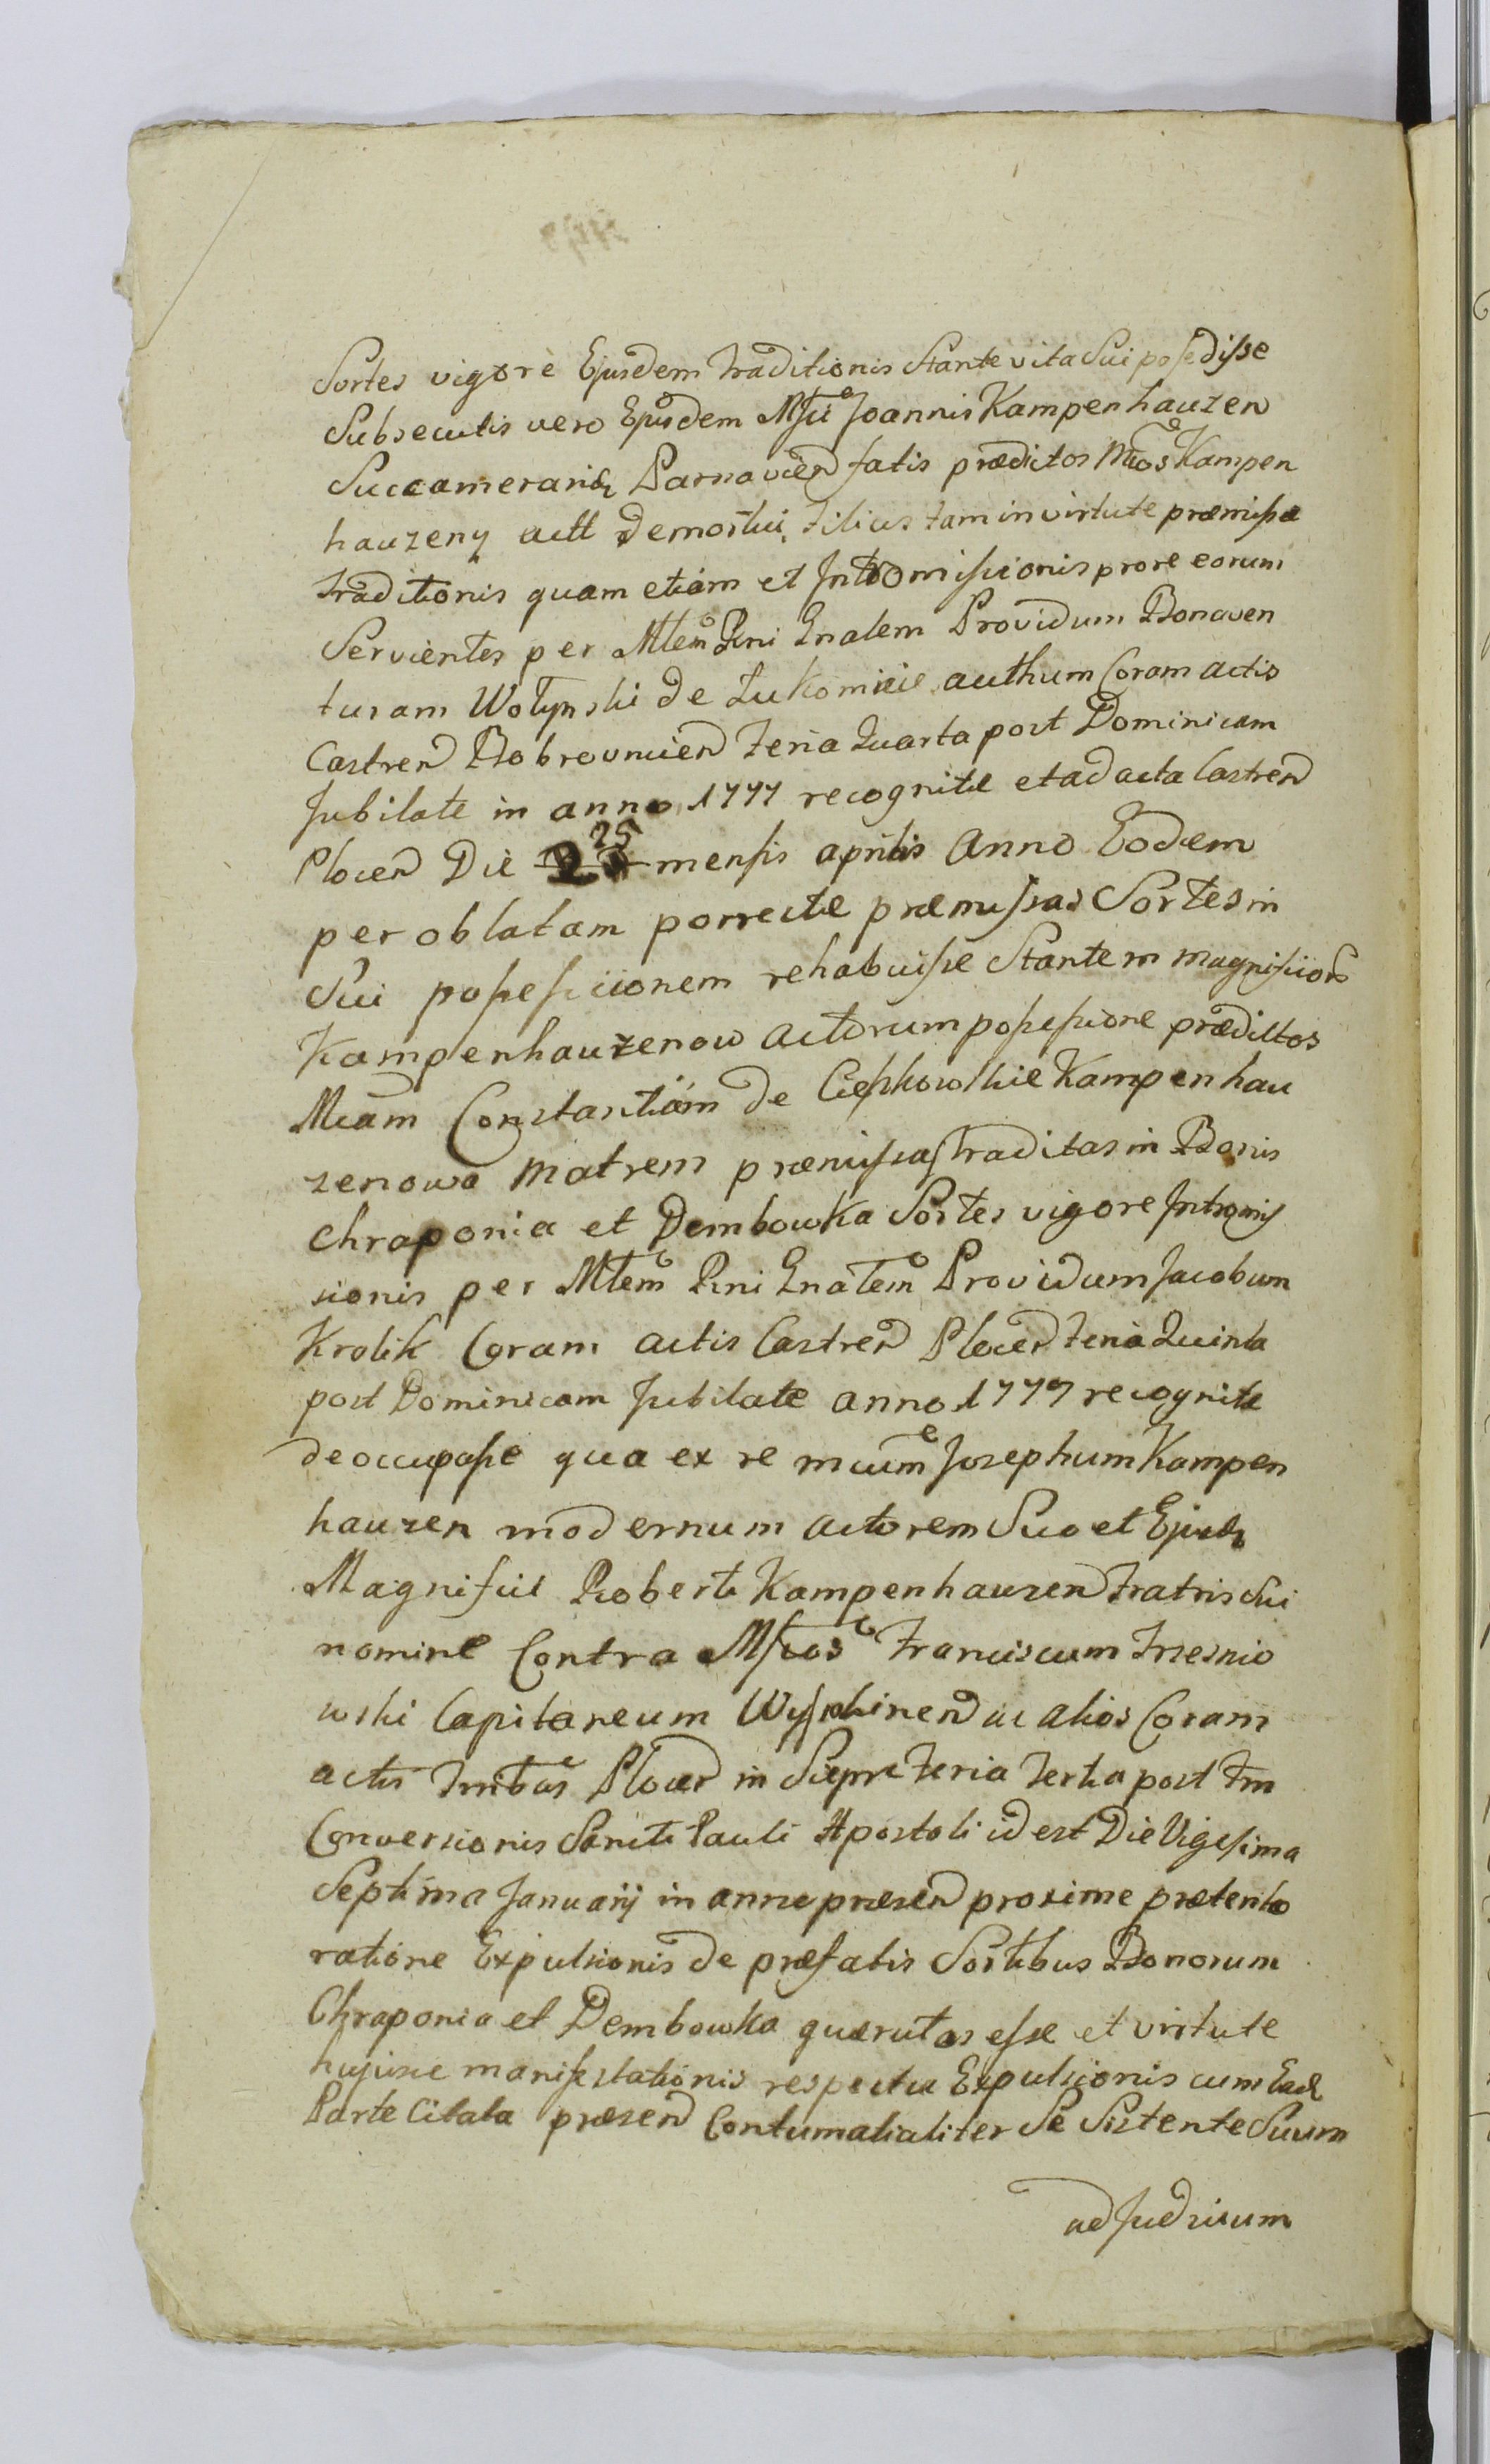 Sortes vigore Ejusdem traditionis Stante vita Sui possedisse
Subsecutis vero Ejusdem Mfci Joannis Kampenhauzen
Succamerarii Parnavien fatis prædictos Mcos Kampen
hauzeny act demortui, Filius tam in virtute præmissæ
traditionis quam etiam et Intromissionis pro re eorum
Servientes per Mtem Rni Gnalem Providum Bonaven
turam Wołynski de Łukomicie authum Coram actis
Castren Bobrovnicien Feria Quarta post Dominicam
Jubilate in anno 1777 recognitæ et ad acta Castren
Plocen Die 25 mensis aprilis Anno Eodem
per oblatam porrectæ præmissas Sortes in
Sui possessiionem rehabuisse Stantem magnificor
Kampenhauzenow actorum possessione prædictos
Mcam Constantiam de Ciechowskie Kampenhau
zenowa Matrem præmissas traditas in Bonis
Chraponia et Dembowka Sortes vigore Intromis
sionis per Mtem Rni Gnalem Providum Jacobum
Krolik Coram actis Castren Plocen Feria Quinta
post Dominicam Jubilate anno 1777 recognitæ
deoccupasse qua ex re mcum Josephum Kampen
hauzen modernum actorem Suo et Ejusd
Magnifici Roberti Kampenhauzen Fratris Sui
nomine Contra Mfcos Franciscum Trzesnio
wski Capitaneum Wyszohinen ac alios Coram
actis Trribus Plocen in Sieprc Feria Tertia post Fm
Conversionis Sancti Pauli Apostoli id est Die Vigesima
Septima Januarij in anno præsen proxime præterito
ratione Expulsionis de præfatis Sortibus Bonorum
Chraponia et Dembowka quærutos esse et virtute
hujusce manifestationis respectu Expulsionis cum Ead
Parte Citata præsen Contumatialiter Se Sistente Suum
ad Judicium